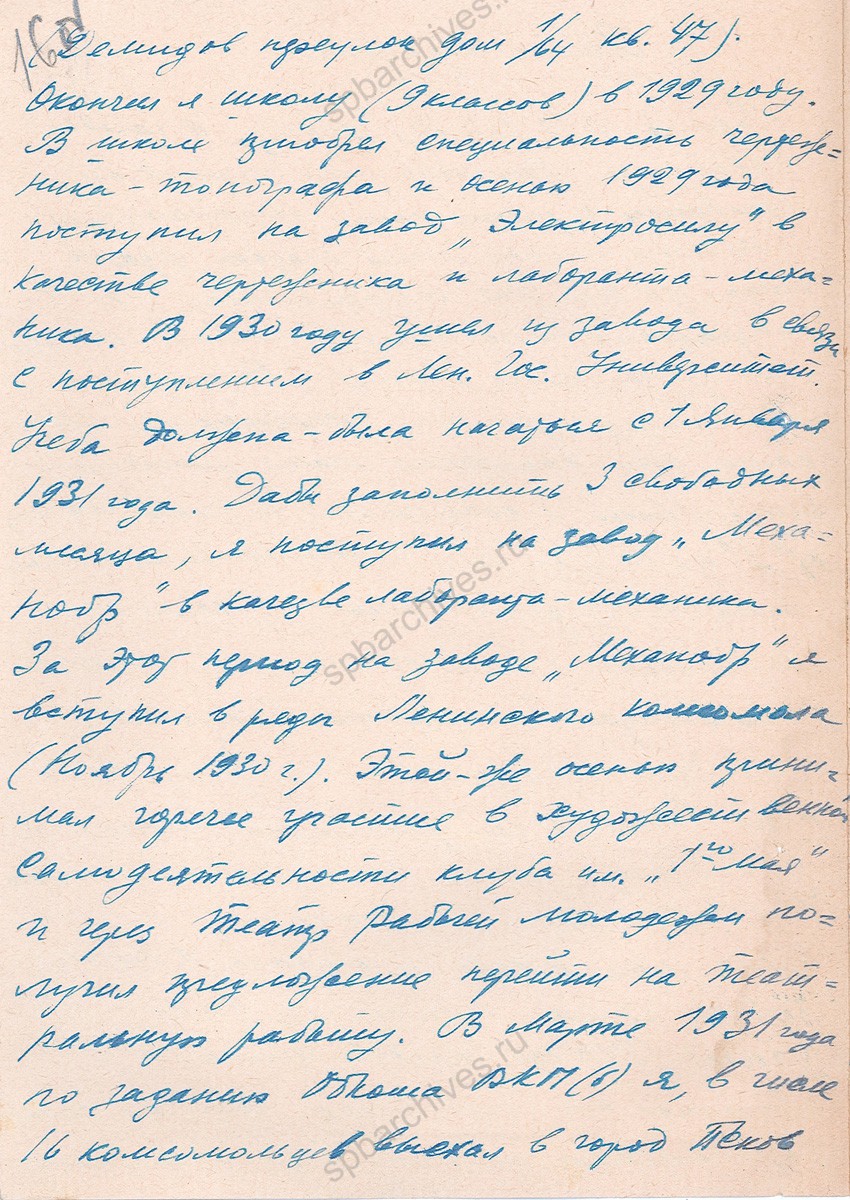 16д
(Демидов переулок дом 1/64 кв. 47).
Окончил я школу (9 классов) в 1929 году.
В школе приобрел специальность чертеж=
ника-топографа и осенью 1929 года
поступил на завод „Электросилу" в
качестве чертежника и лаборанта-меха-
ника. В 1930 году ушел из завода в связи
с поступлением в Лен. Гос. Университет.
Учеба должна-была начаться с 1 Января
1931 года. Дабы заполнить 3 свободных
месяца, я поступил на завод „Меха=
нобр" в качезве лаборанта-механика.
За этот период на заводе „Механобр" я
вступил в ряды Ленинского комсомола
(Ноябрь 1930 г.). Этой-же осенью прини-
мал горячее участие в художественной
самодеятельности клуба им. „1го Мая"
и через Театр Рабочей молодежи по=
лучил предложение перейти на теат=
ральную работу. В Марте 1931 года
по заданию Обкома ВКП(б) я, в числе
16 комсомольцев выехал в город Псков
spbarchives.ru
spbarchives.ru
spbarchives.ru
spbarchives.ru